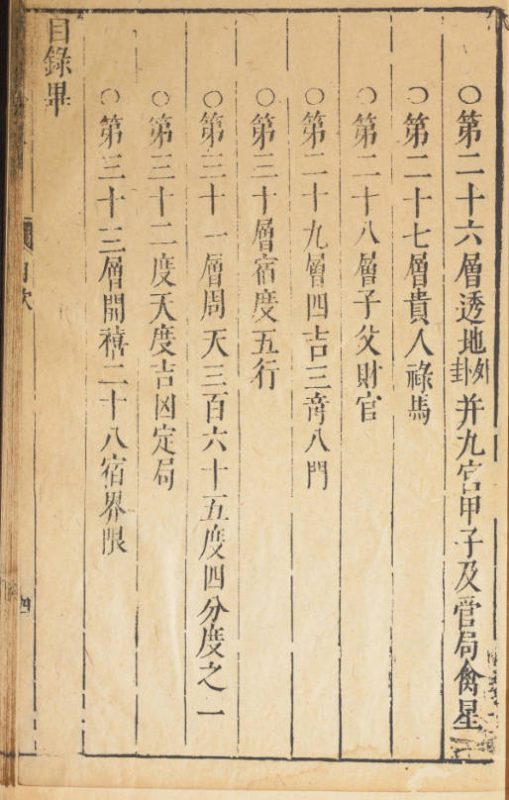 ○第二十六層透地卦例并九宮甲子及管局禽星
○第二十七層貴人祿馬
○第二十八層子父財官
○第二十九層四吉三竒八門
○第三十層宿度五行
○第三十一層周天三百六十五度四分度之一
○第三十二度天度吉凶定局
○第三十三層開禧二十八宿界限
目錄畢
目次
四